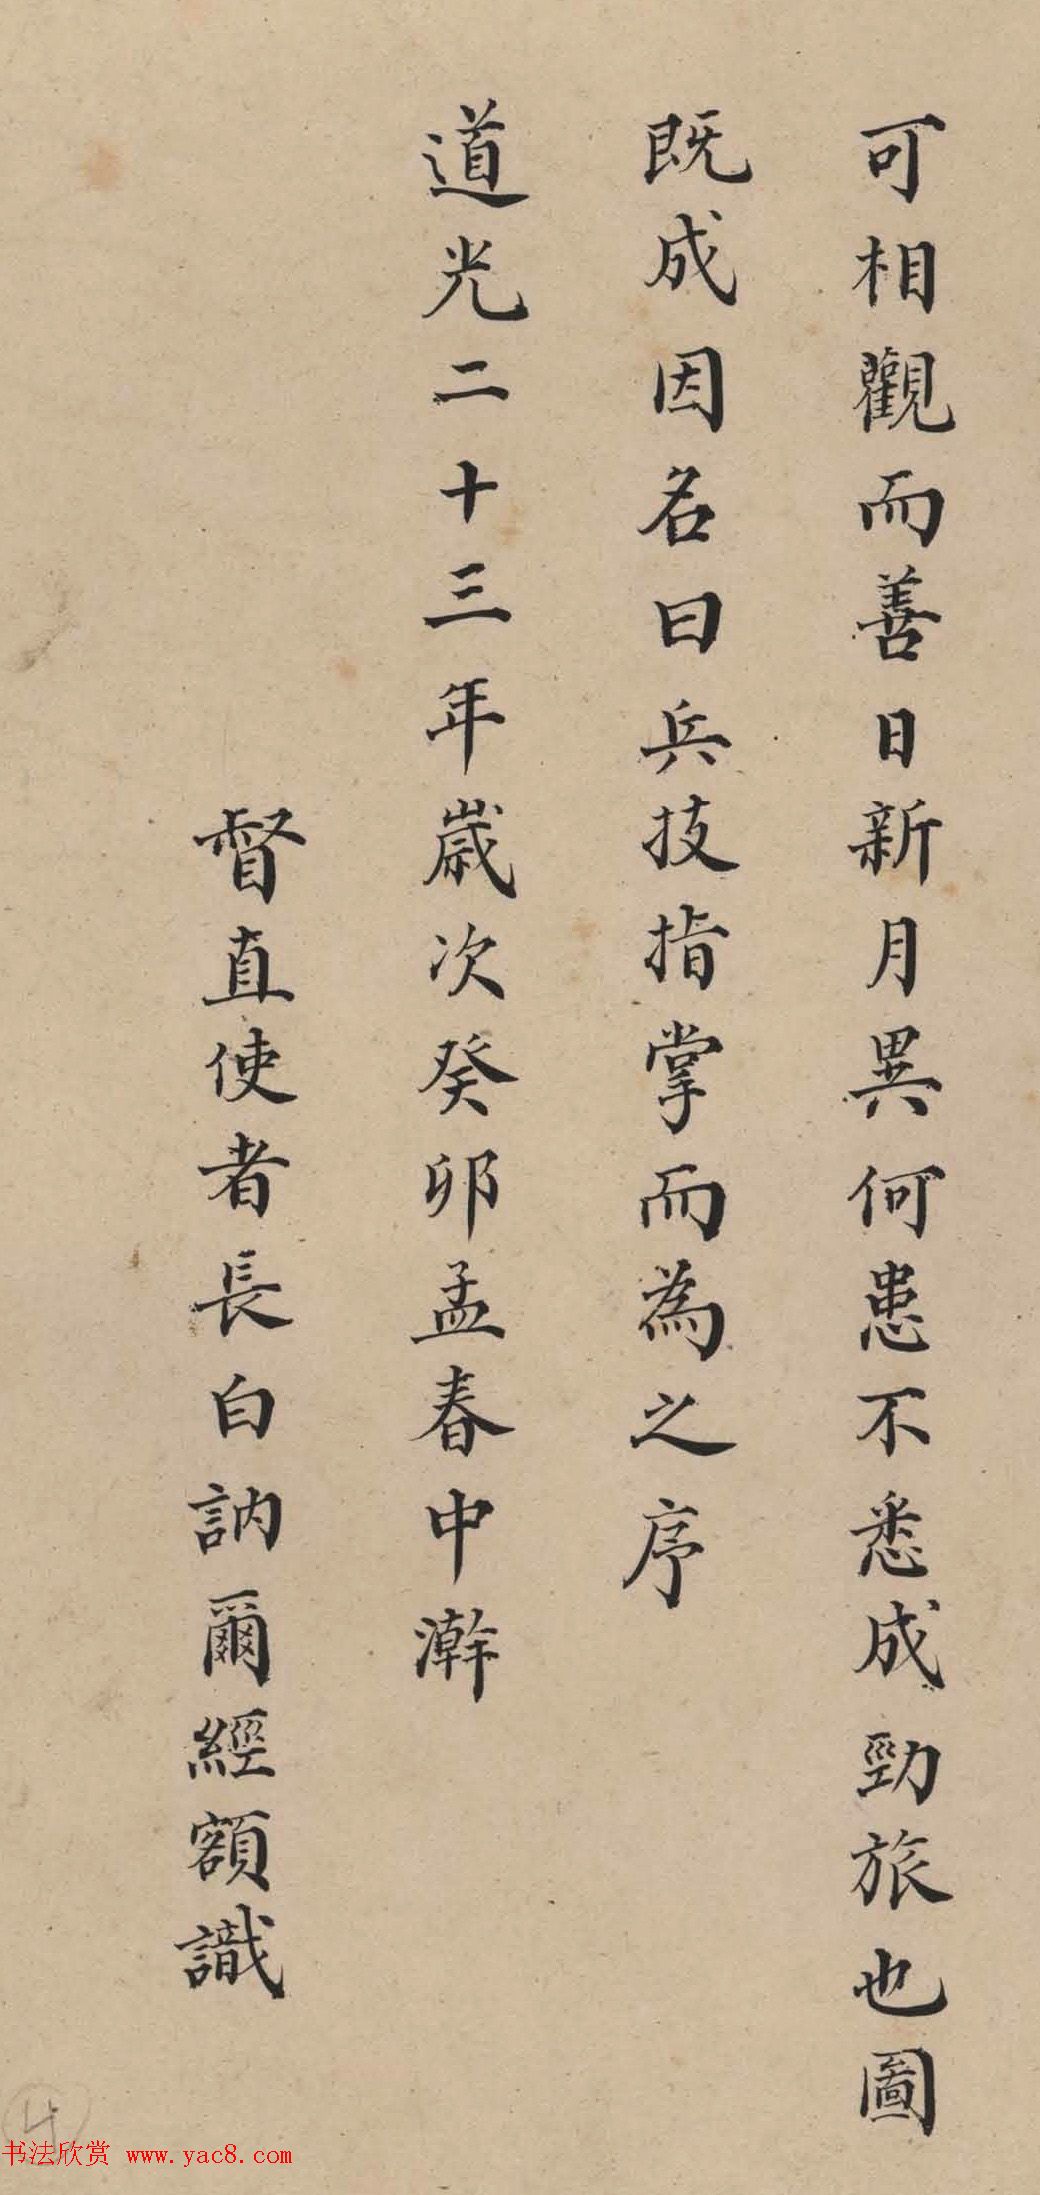 可相觀而善日新月異何患不悉成勁旅也圖
既成因名曰兵技指掌而為之序
道光二十三年歲次癸卯孟春中澣
督直使者長白訥爾經額識
4
书法欣赏 www.yac8.com